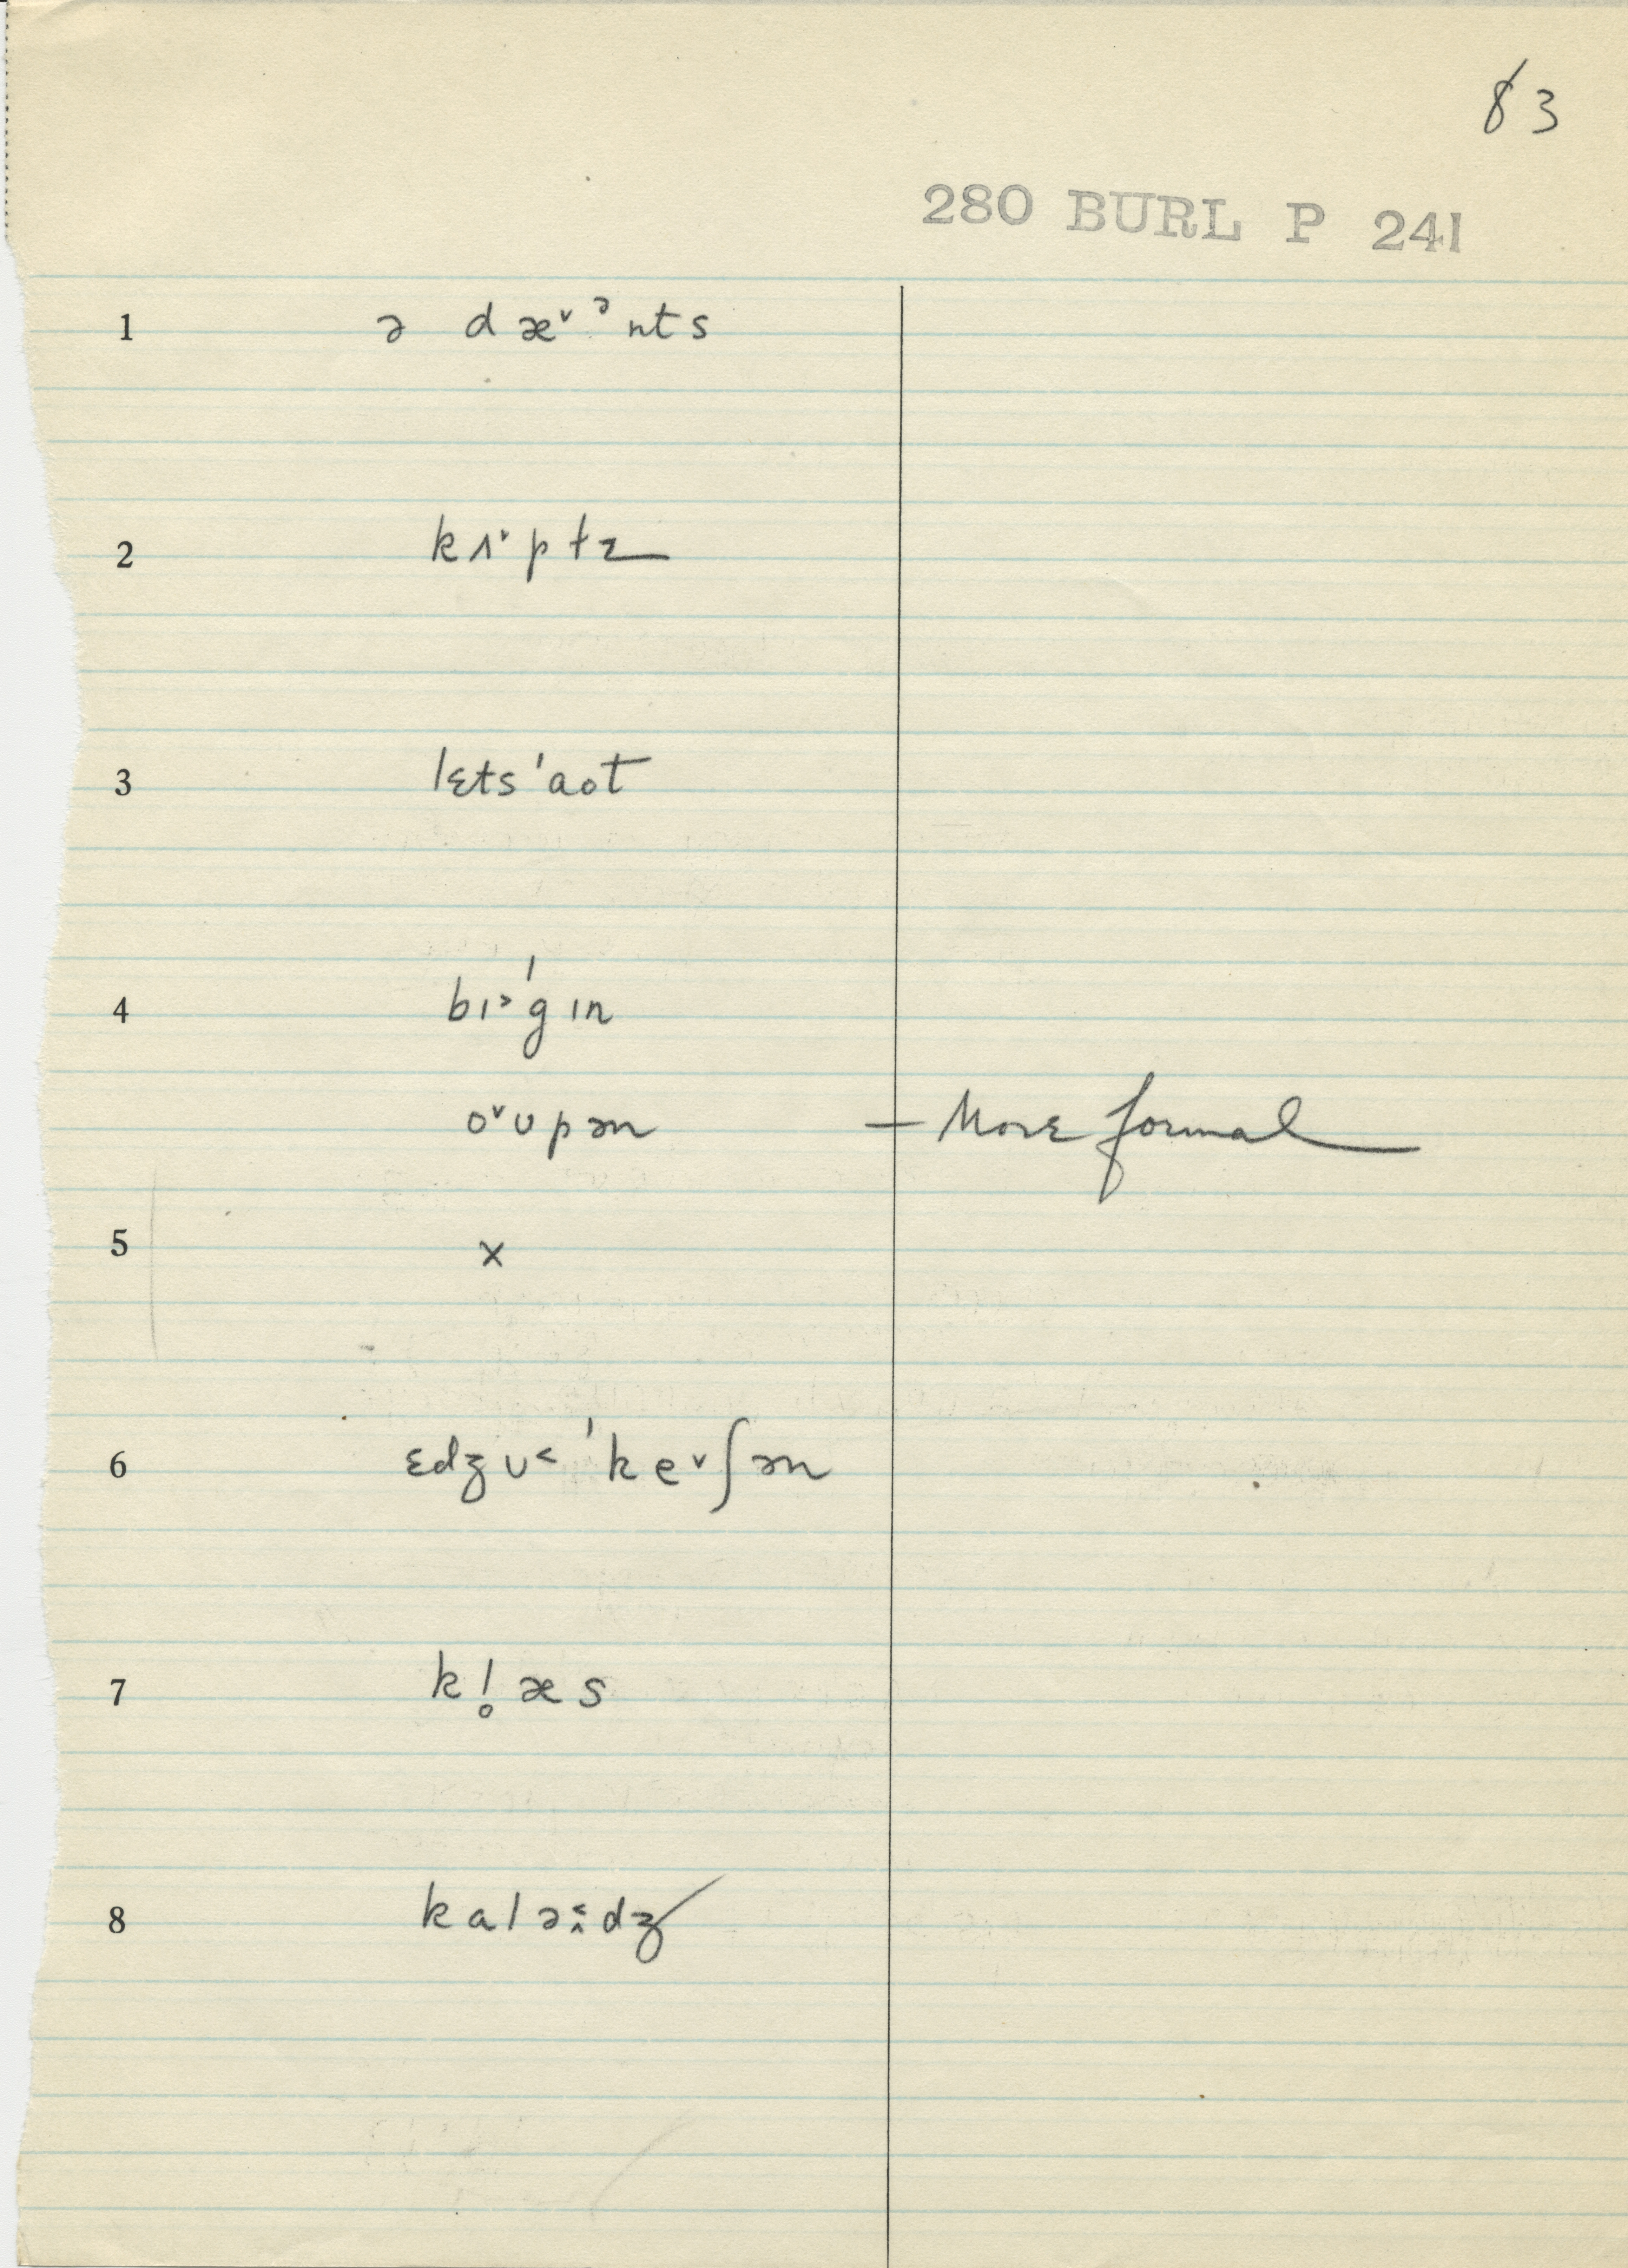 83
280 BURL P 241
1 ə dæ˅ᵊnts
2 kɪ˅ptɪ
3 lɛts ˈaʊt
4 bɪ˃ˈgɪn
o˅ʊpən — More formal
5 x
6 ɛdʒʊ˂ˈke˅ʃən
7 kl̥æs
8 kalə˂̭dʒ